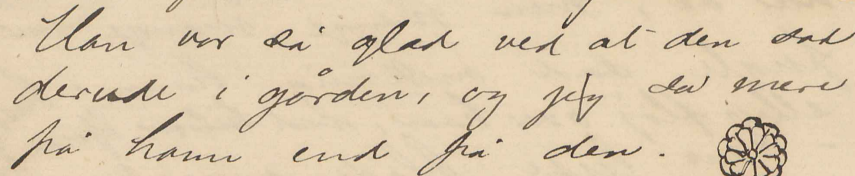 Han var så glad ved at den sad
derude i gården, og jeg så mere
på ham end på den.